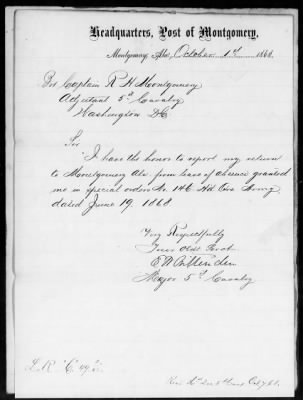 Headquarters, Post of Montgomery,
Montgomery, Ala, October 1st 1868
Captain R H Montgomery
Adjutant 5th Cavalry
Washington DC
Sir
I have the honor to report my return
to Montgomery Ala from leave of absence granted
me in Special orders No. 146 Hd Qrs Army
dated June 19. 1868
Very Respectfully
Your Obdt Servt
Major 5th Cavalry
L.R. "C. 49."